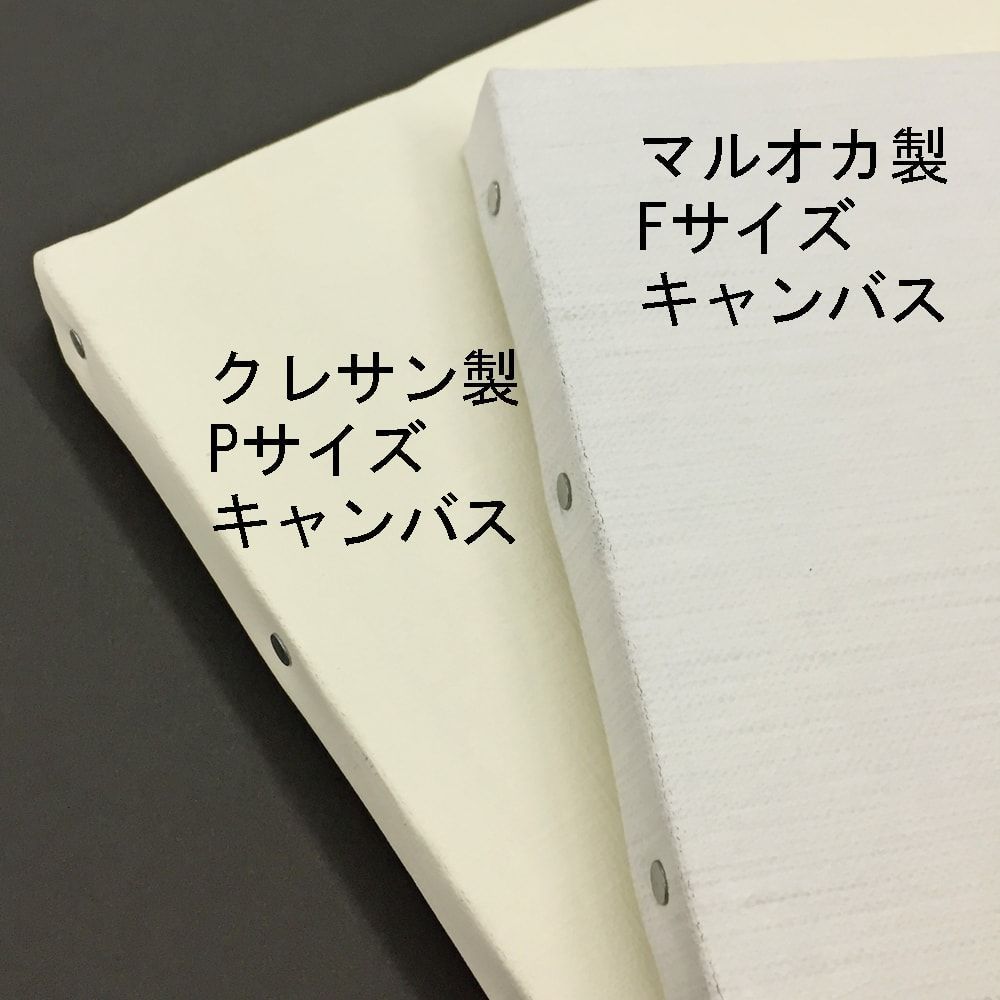 マルオカ製
Fサイズ
キャンバス
クレサン製
Pサイズ
キャンバス